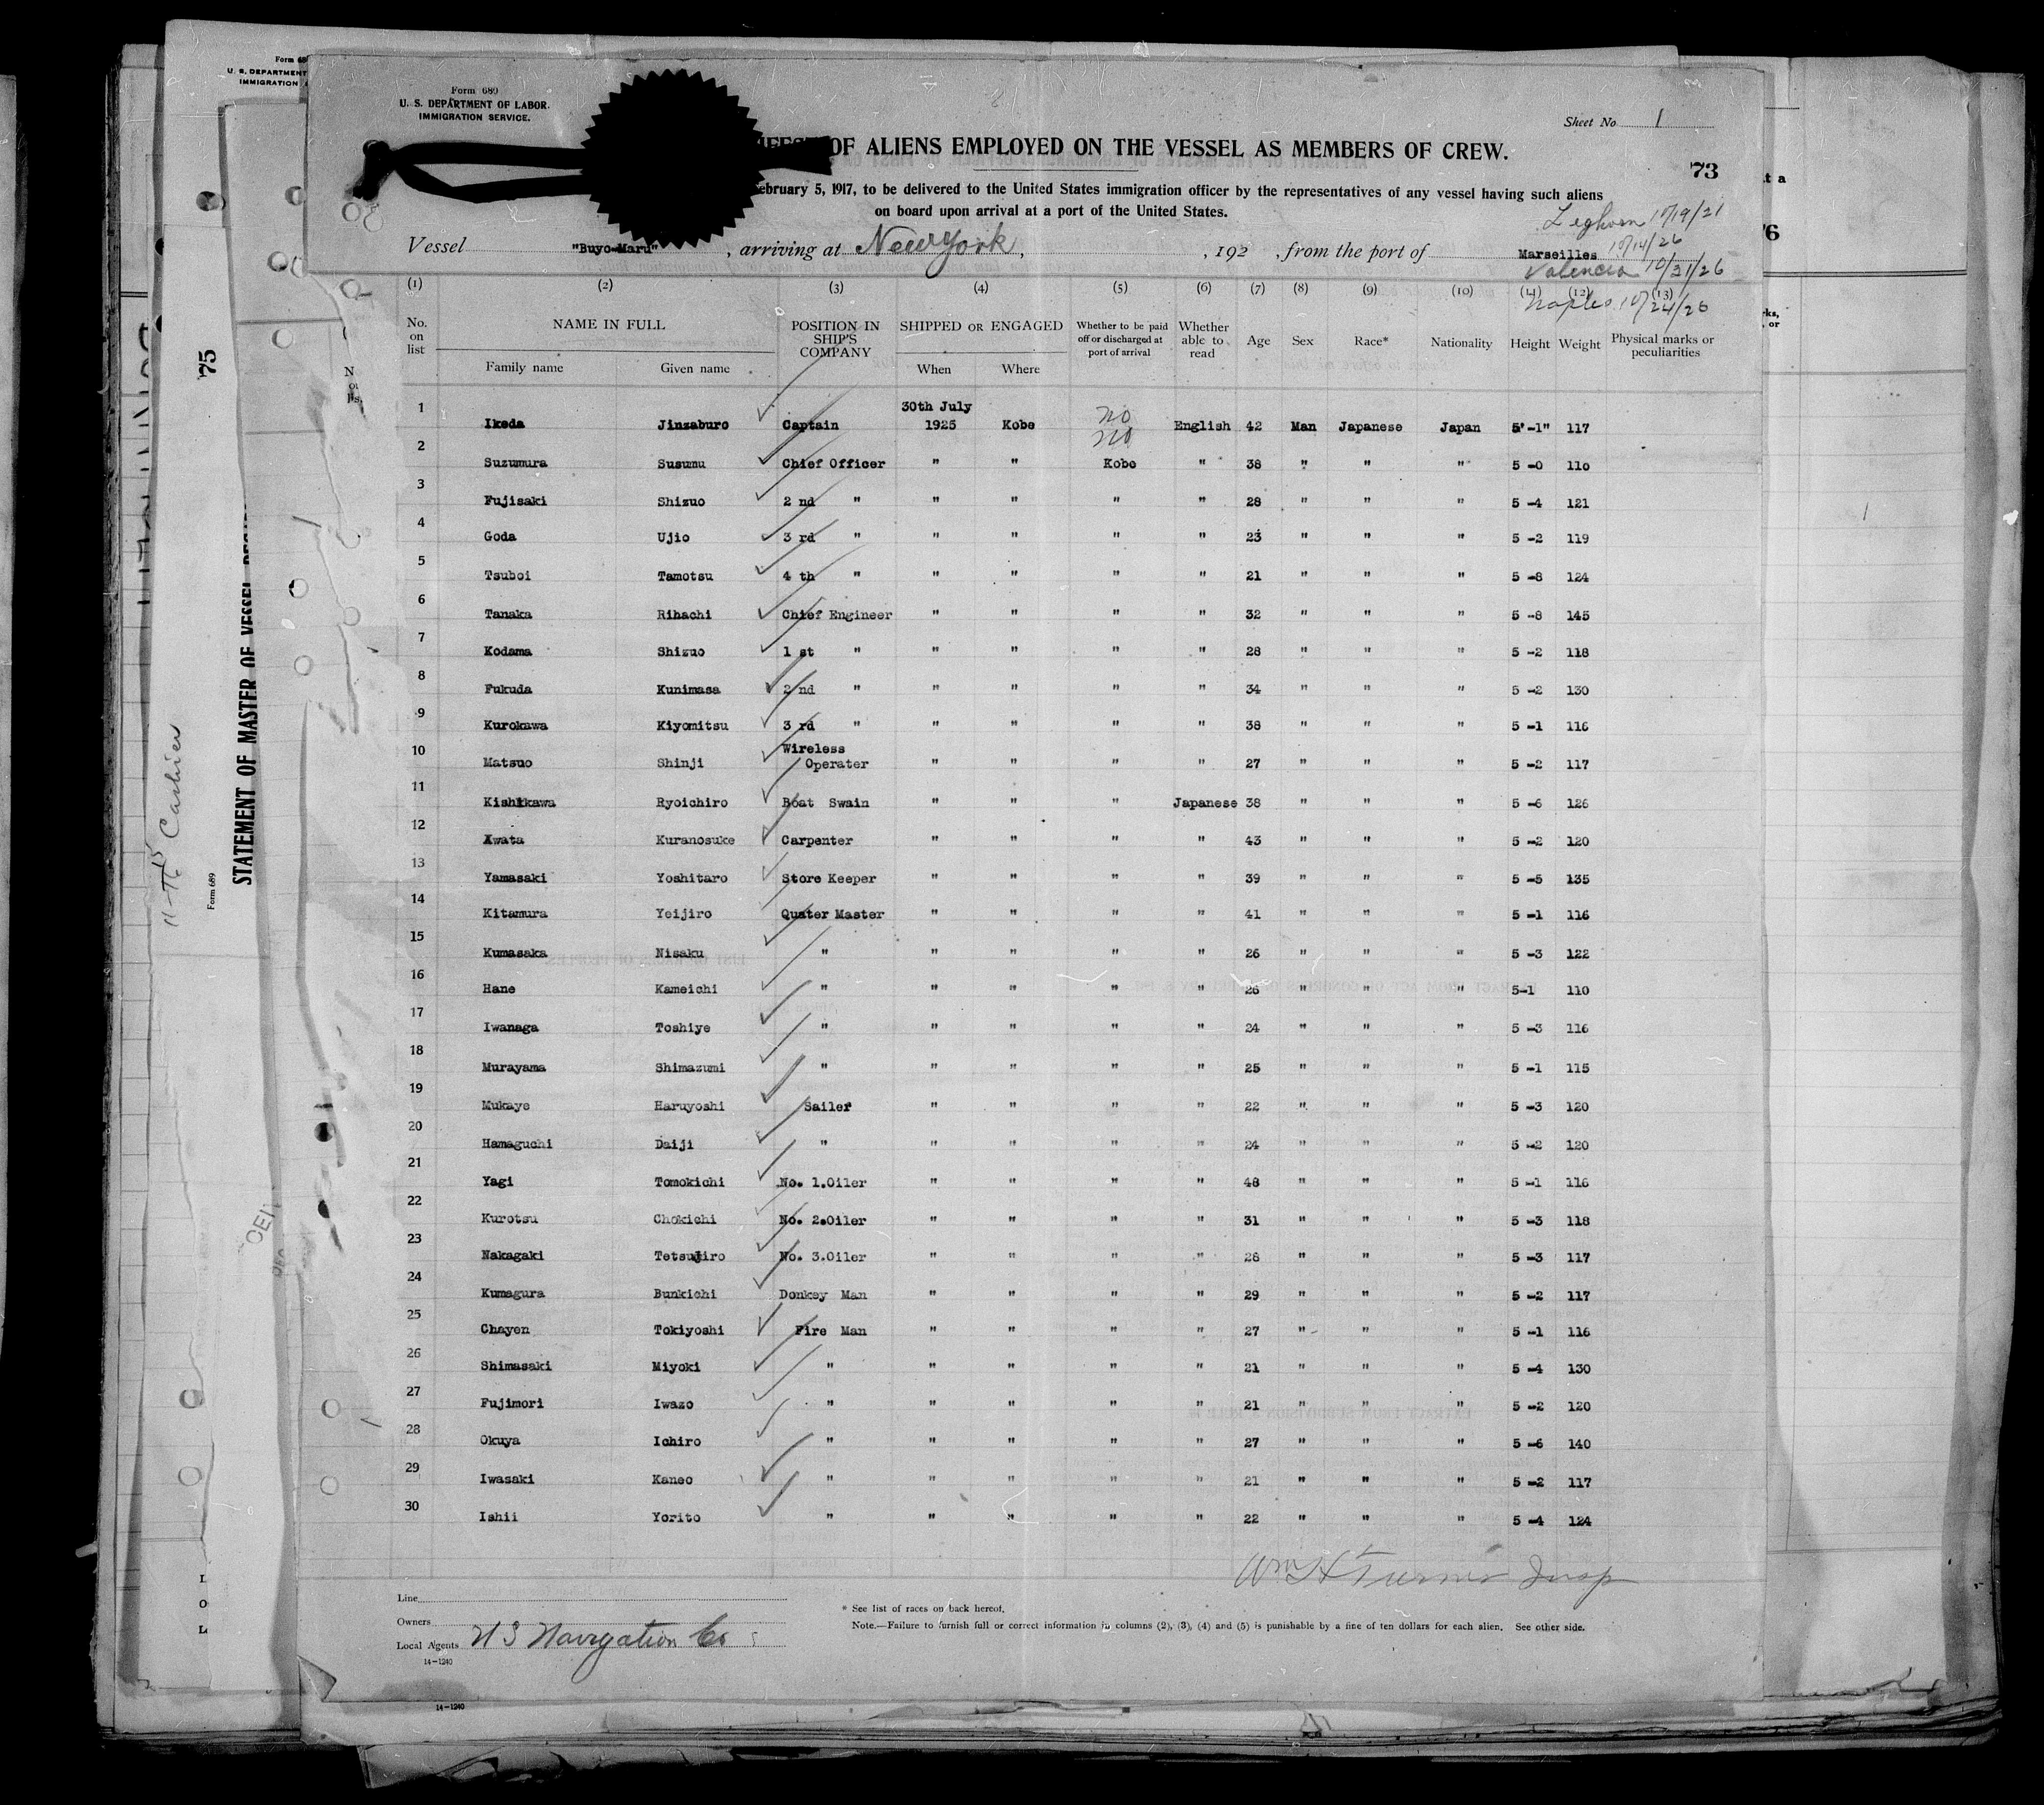 Form 689
U. S. DEPARTMENT OF LABOR.
IMMIGRATION SERVICE.
Sheet No. 1
OF ALIENS EMPLOYED ON THE VESSEL AS MEMBERS OF CREW.
73
February 5, 1917, to be delivered to the United States immigration officer by the representatives of any vessel having such aliens
on board upon arrival at a port of the United States.
Leghorn 10/19/21
Vessel "Buyo-Maru", arriving at New York, , 192 , from the port of Marseilles 10/14/26
Valencia 10/31/26
Naples 10/24/26
(1) (2) (3) (4) (5) (6) (7) (8) (9) (10) (11) (12) (13)
No. on list NAME IN FULL Family name Given name POSITION IN SHIP'S COMPANY SHIPPED OR ENGAGED When Where Whether to be paid off or discharged at port of arrival Whether able to read Age Sex Race* Nationality Height Weight Physical marks or peculiarities
1 Ikeda Jinzaburo Captain 30th July 1925 Kobe no English 42 Man Japanese Japan 5'-1" 117
no
2 Suzumura Susumu Chief Officer " " Kobe " 38 " " " 5 -0 110
3 Fujisaki Shizuo 2 nd " " " " " 28 " " " 5 -4 121
4 Goda Ujio 3 rd " " " " " 23 " " " 5 -2 119
5 Tsuboi Tamotsu 4 th " " " " " 21 " " " 5 -8 124
6 Tanaka Rihachi Chief Engineer " " " " 32 " " " 5 -8 145
7 Kodama Shizuo 1 st " " " " " 28 " " " 5 -2 118
8 Fukuda Kunimasa 2 nd " " " " " 34 " " " 5 -2 130
9 Kurokawa Kiyomitsu 3 rd " " " " " 38 " " " 5 -1 116
10 Matsuo Shinji Wireless Operater " " " " 27 " " " 5 -2 117
11 Kishikawa Ryoichiro Boat Swain " " " Japanese 38 " " " 5 -6 126
12 Awata Kuranosuke Carpenter " " " " 43 " " " 5 -2 120
13 Yamasaki Yoshitaro Store Keeper " " " " 39 " " " 5 -5 135
14 Kitamura Yeijiro Quater Master " " " " 41 " " " 5 -1 116
15 Kumasaka Nisaku " " " " " 26 " " " 5 -3 122
16 Hane Kameichi " " " " " 26 " " " 5-1 110
17 Iwanaga Toshiye " " " " " 24 " " " 5 -3 116
18 Murayama Shimazumi " " " " " 25 " " " 5 -1 115
19 Mukaye Haruyoshi Sailer " " " " 22 " " " 5 -3 120
20 Hamaguchi Daiji " " " " " 24 " " " 5 -2 120
21 Yagi Tomokichi No. 1.Oiler " " " " 48 " " " 5 -1 116
22 Kurotsu Chokichi No. 2.Oiler " " " " 31 " " " 5 -3 118
23 Nakagaki Tetsujiro No. 3.Oiler " " " " 28 " " " 5 -3 117
24 Kumagura Bunkichi Donkey Man " " " " 29 " " " 5 -2 117
25 Chayen Tokiyoshi Fire Man " " " " 27 " " " 5 -1 116
26 Shimasaki Miyoki " " " " " 21 " " " 5 -4 130
27 Fujimori Iwazo " " " " " 21 " " " 5 -2 120
28 Okuya Ichiro " " " " " 27 " " " 5 -6 140
29 Iwasaki Kaneo " " " " " 21 " " " 5 -2 117
30 Ishii Yorito " " " " " 22 " " " 5 -4 124
Wm H Turner Insp
Line
Owners
Local Agents U S Navigation Co
14-1240
* See list of races on back hereof.
Note.—Failure to furnish full or correct information in columns (2), (3), (4) and (5) is punishable by a fine of ten dollars for each alien. See other side.
14-1240
Form 689
U. S. DEPARTMENT
IMMIGRATION
75
STATEMENT OF MASTER OF VESSEL
Form 689
Cashier